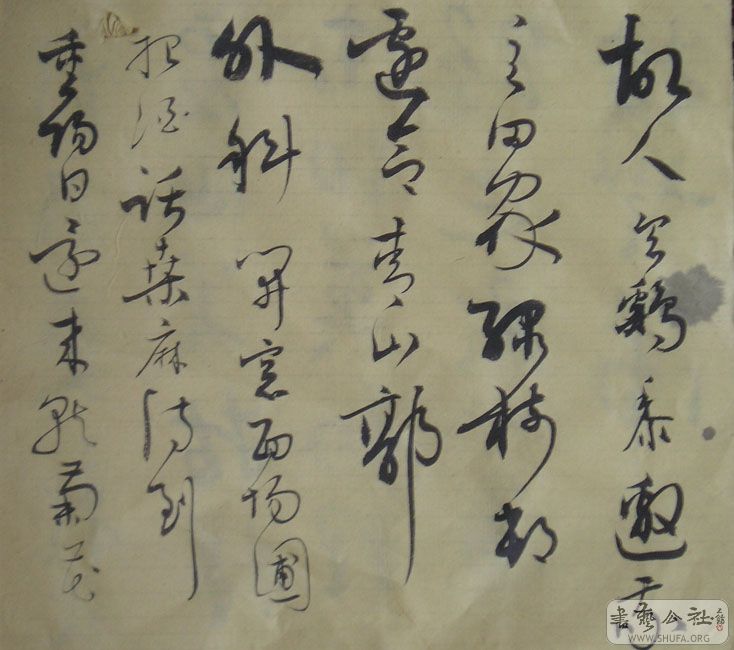 故人具鷄黍邀我
至田家绿树村
邊合青山郭
外斜開窓面场圃
把酒話桑麻待到
重陽日還來就菊花
書藝公社
WWW.SHUFA.ORG